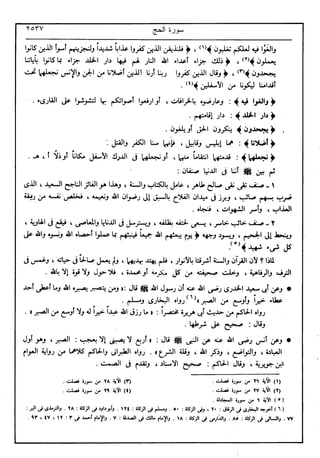 سورة الحج
٢٥٣٧
والغوا فيه لعلكم تغلبون ﴾(١)، ﴿ فلنذيقن الذين كفروا عذاباً شديداً ولنجزينهم أسوأ الذين كانوا
يعملون ﴾(٢)، ﴿ ذلك جزاء أعداء الله النار لهم فيها دار الخلد جزاء بما كانوا بآياتنا
يجحدون ﴾(٣)، ﴿ وقال الذين كفروا ربنا أرنا اللذين أضلانا من الجن والإنس نجعلهما تحت
أقدامنا ليكونا من الأسفلين ﴾(٤).
﴿ والغوا فيه ﴾: وعارضوه بالخرافات، أو ارفعوا أصواتكم بها لتشوشوا على القارىء.
﴿ دار الخلد ﴾: دار إقامتهم.
﴿ يجحدون ﴾ ينكرون الحق أو يلغون.
﴿ أضلانا ﴾: هما إبليس وقابيل، فإنهما سنا الكفر والقتل:
﴿ نجعلهما ﴾: ندسهما انتقاماً منهما، أو نجعلهما في الدرك الأسفل مكاناً أو ذلاً أ. هـ.
ثم بين ﷺ أننا في الدنيا صنفان:
١ - صنف تقي نقي صالح طاهر، عامل بالكتاب والسنة، وهذا هو الفائز الناجح السعيد، الذي
ضرب بسهم صائب، وبرز في ميدان الفلاح بالسبق إلى رضوان الله ونعيمه، فخلص نفسه من ربقة
العذاب، وأسر الشهوات، فنجاه.
٢ - صنف خائب خاسر، يسعى لحتفه بظلفه، ويسترسل في الدنايا والمعاصي، فيقع في الهاوية،
وينحط إلى الجحيم، ويسود وجهه ﴿ يوم يبعثهم الله جميعاً فينبئهم بما عملوا أحصاه الله ونسوه والله على
كل شيء شهيد ﴾(٥).
لماذا ؟ لأن القرآن والسنة أشرقتا بالأنوار، فلم يهتد بهديهما، ولم يعمل صالحاً في حياته، وغمس في
الترف والرفاهية، وخلت صحيفته من كل مكرمة أو محمدة، فلا حول ولا قوة إلا بالله.
❁ وعن أبي سعيد الخدري رضي الله عنه أن رسول الله ﷺ قال: « ومن يتصبر يصبره الله وما أعطي أحد
عطاء خيراً وأوسع من الصبر »(٦) رواه البخاري ومسلم.
ورواه الحاكم من حديث أبي هريرة مختصراً: « ما رزق الله عبداً خيراً له ولا أوسع من الصبر ».
وقال: صحيح على شرطهما.
❁ وعن أنس رضي الله عنه عن النبي ﷺ قال: « أربع لا يصبن إلا بعجب: الصبر، وهو أول
العبادة، والتواضع، وذكر الله، وقلة الشيء ». رواه الطبراني والحاكم كلاهما من رواية العوام
ابن جويرية، وقال الحاكم: صحيح الإسناد، وتقدم في الصمت.
(١) الآية ٢٦ من سورة فصلت.
(٣) الآية ٢٨ من سورة فصلت.
(٢) الآية ٢٧ من سورة فصلت.
(٤) الآية ٢٩ من سورة فصلت.
(٥) الآية ٦ من سورة المجادلة.
(٦) أخرجه البخاري في الرقاق: ٢٠، وفي الزكاة: ٥٠. ومسلم في الزكاة: ١٢٤. وأبو داود في الزكاة: ٢٨. والترمذي في البر:
٧٧. والنسائي في الزكاة: ٨٥. والدارمي في الزكاة: ١٨. والإمام مالك في الصدقة: ٧. والإمام أحمد في ٣: ١٢، ٤٧، ٩٣.